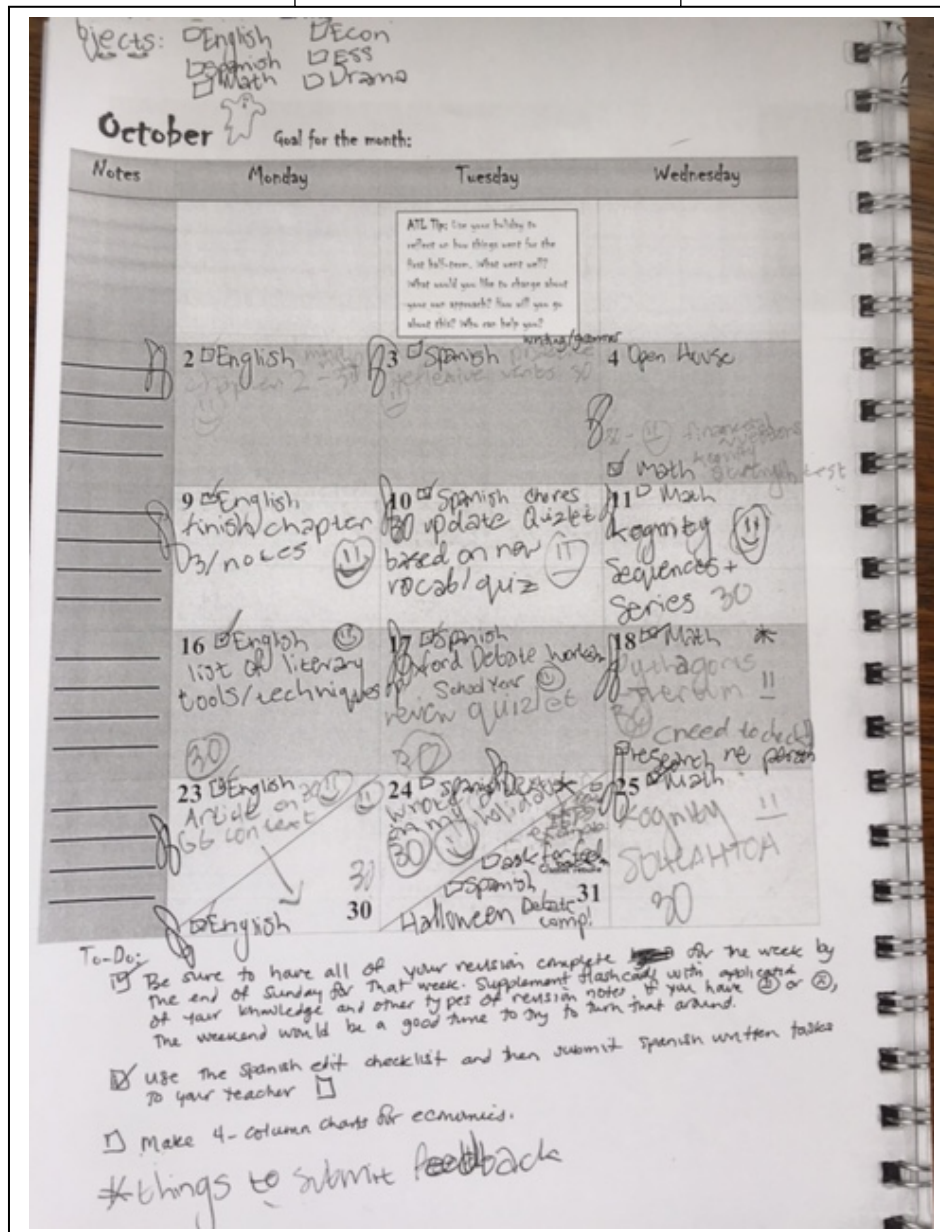 bjects: English Econ
Spanish ESS
Math Drama
October Goal for the month:
Notes Monday Tuesday Wednesday
ATL Tip: Use your holiday to
reflect on how things went for the
first half-term. What went well?
What would you like to change about
your own approach? How will you go
about this? Who can help you?
2 English
chapter 2 - 30
3 Spanish writing/grammar practice
reflexive verbs 30
4 Open House
financial
Math Kognity strength test
9 English
finish chapter
3/notes
10 Spanish chores
30 update Quizlet
based on new
vocab/quiz
11 Math
Kognity
Sequences +
Series 30
16 English
list of literary
tools/techniques
30
17 Spanish
Oxford Debate Worksh
School Year
review quizlet
30
18 Math *
Pythagoris
!!
(need to check)
research
23 English
Article on
GG context
30
English 30
24 Spanish *
wrote
on my holiday
30
ask for feed
Spanish
31
Halloween Debate
comp!
25 Math
Kognity !!
30
To-Do:
Be sure to have all of your revision complete for the week by
the end of Sunday for that week. Supplement flashcards with application
of your knowledge and other types of revision notes. If you have or ,
The weekend would be a good time to try to turn that around.
use the Spanish edit checklist and then submit Spanish written tasks
to your teacher
Make 4-column charts for ecnomics.
*things to submit feedback